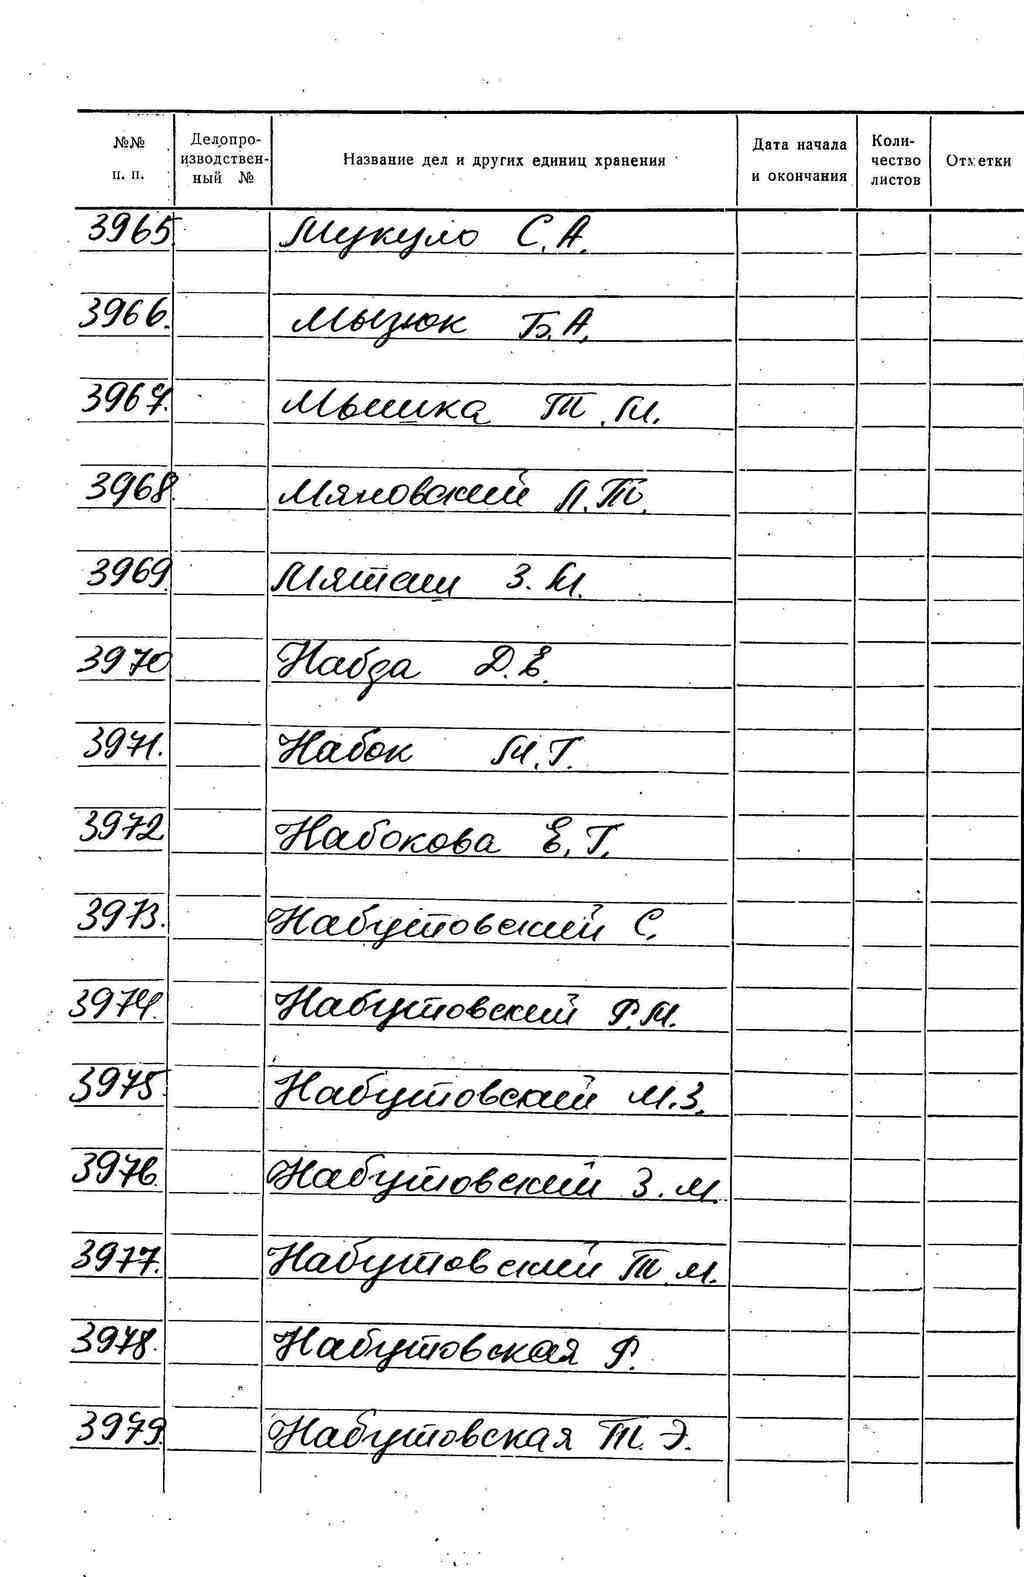 №№ п. п. Делопроизводственный № Название дел и других единиц хранения Дата начала и окончания Количество листов Отметки
3965 Мукуло С. А.
3966. Мызюк Б. А.
3967. Мышка Т. М.
3968. Мяновский Л. Т.
3969. Мяташ З. М.
3970 Набда Д. Е.
3971. Набок М. Г.
3972 Набокова Е. Г.
3973. Набутовский С.
3974. Набутовский Р. М.
3975 Набутовский М. З.
3976. Набутовский З. М.
3977. Набутовский Т. М.
3978. Набутовская Р.
3979. Набутовская Т. Э.